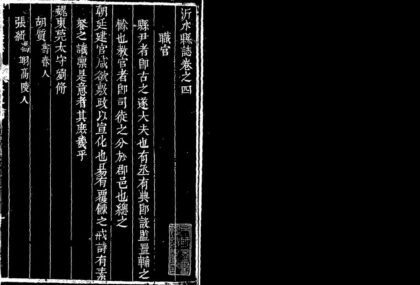 沂水縣誌卷之四
職官
縣尹者即古之遂大夫也有丞有典即設監監輔之
餘也教官者即司徒之分於郡邑也總之
朝廷建官咸欲敷政以宣化也易有覆餗之戒詩有素
餐之議凜是意者其庶幾乎
魏東莞太守劉脩
胡質壽春人
張緝馮翊高陵人